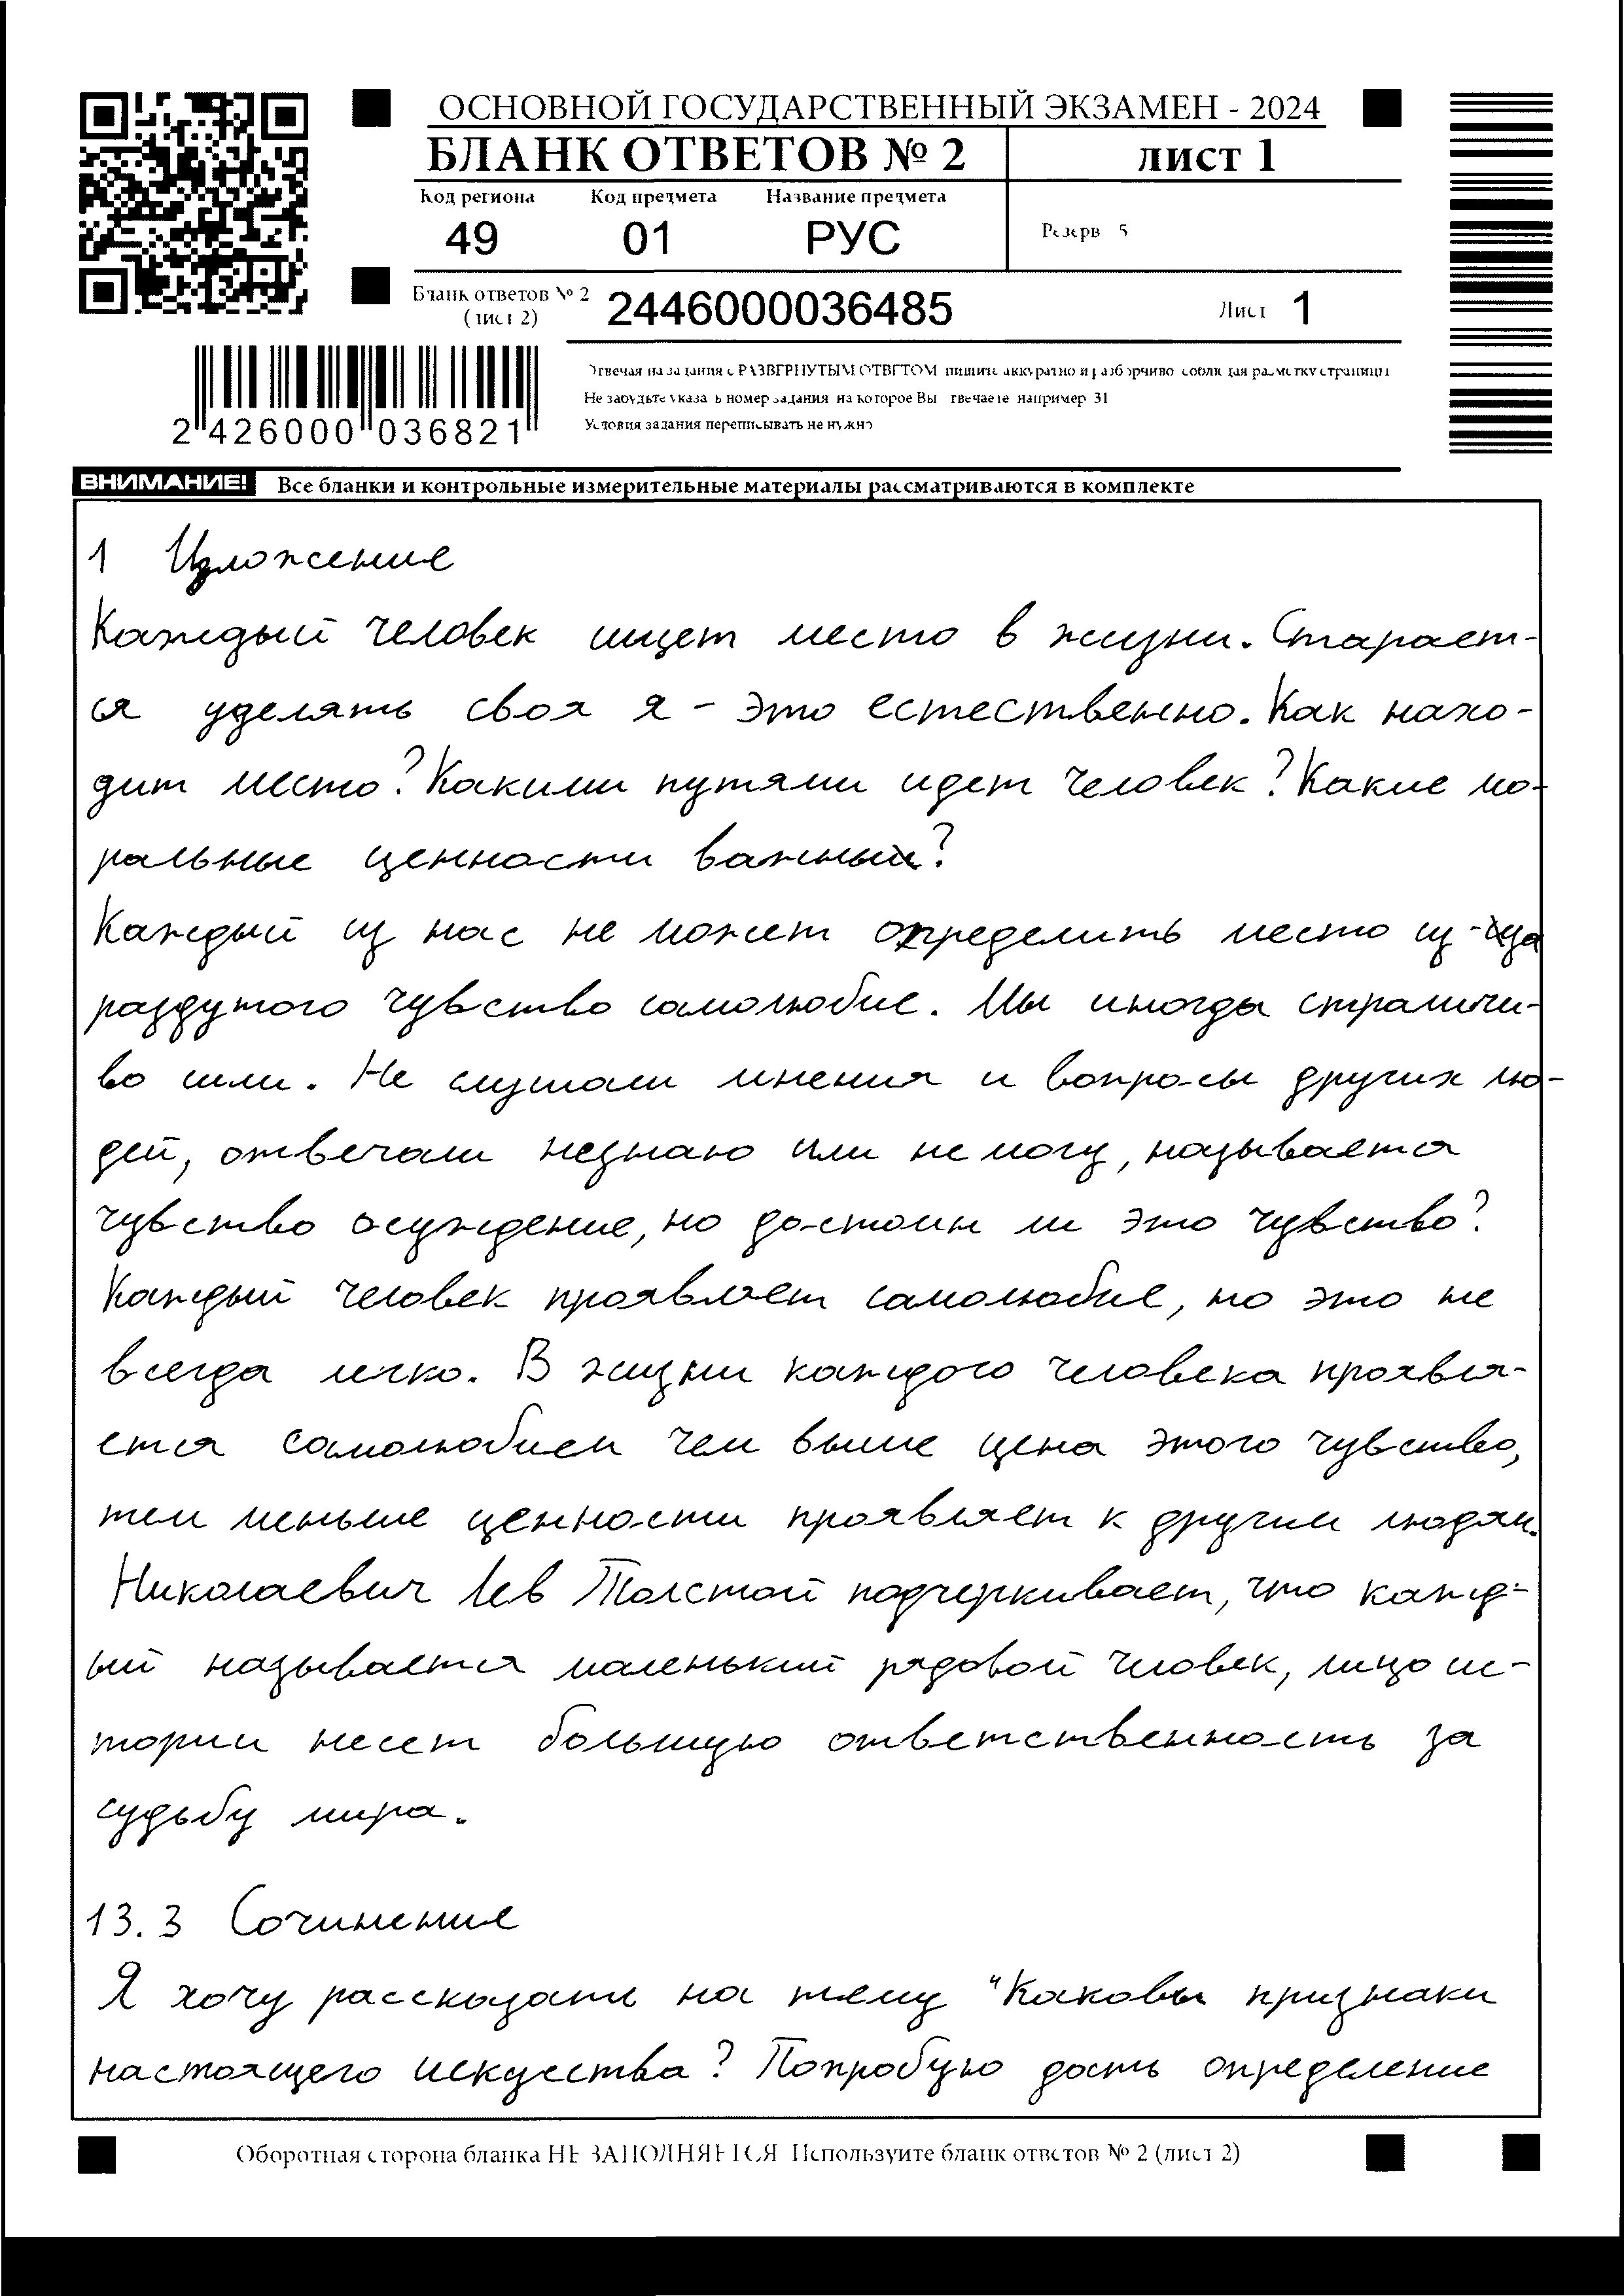 ОСНОВНОЙ ГОСУДАРСТВЕННЫЙ ЭКЗАМЕН - 2024
БЛАНК ОТВЕТОВ № 2 ЛИСТ 1
Код региона Код предмета Название предмета
49 01 РУС
Резерв 5
Бланк ответов № 2 (лист 2) 2446000036485 Лист 1
2 426000 036821
Отвечая на задания с РАЗВЕРНУТЫМ ОТВЕТОМ пишите аккуратно и разборчиво соблюдая разметку страницы
Не забудьте указать номер задания на которое Вы отвечаете например 31
Условия задания переписывать не нужно
ВНИМАНИЕ! Все бланки и контрольные измерительные материалы рассматриваются в комплекте
1 Изложение
Каждый человек ищет место в жизни. Старает-
ся уделять своя я - это естественно. Как нахо-
дит место? Какими путями идет человек? Какие мо-
ральные ценности важный?
Каждый из нас не может определить место из-за
раздутого чувство самолюбие. Мы иногда
во шли. Не слушали мнения и вопросы других лю-
дей, отвечали незнаю или не могу, называется
чувство осуждение, но достоин ли это чувство?
Каждый человек проявляет самолюбие, но это не
всегда легко. В жизни каждого человека проявля-
ется самолюбием чем выше цена этого чувство,
тем меньше ценности проявляет к другим людям.
Николаевич Лев Толстой подчеркивает, что кажд-
ый называется маленький рядовой человек, лицо ис-
тории несет большую ответственность за
судьбу мира.
13.3 Сочинение
Я хочу рассказать на тему "Каковы признаки
настоящего искусства? Попробую дать определение
Оборотная сторона бланка НЕ ЗАПОЛНЯЕТСЯ Используйте бланк ответов № 2 (лист 2)